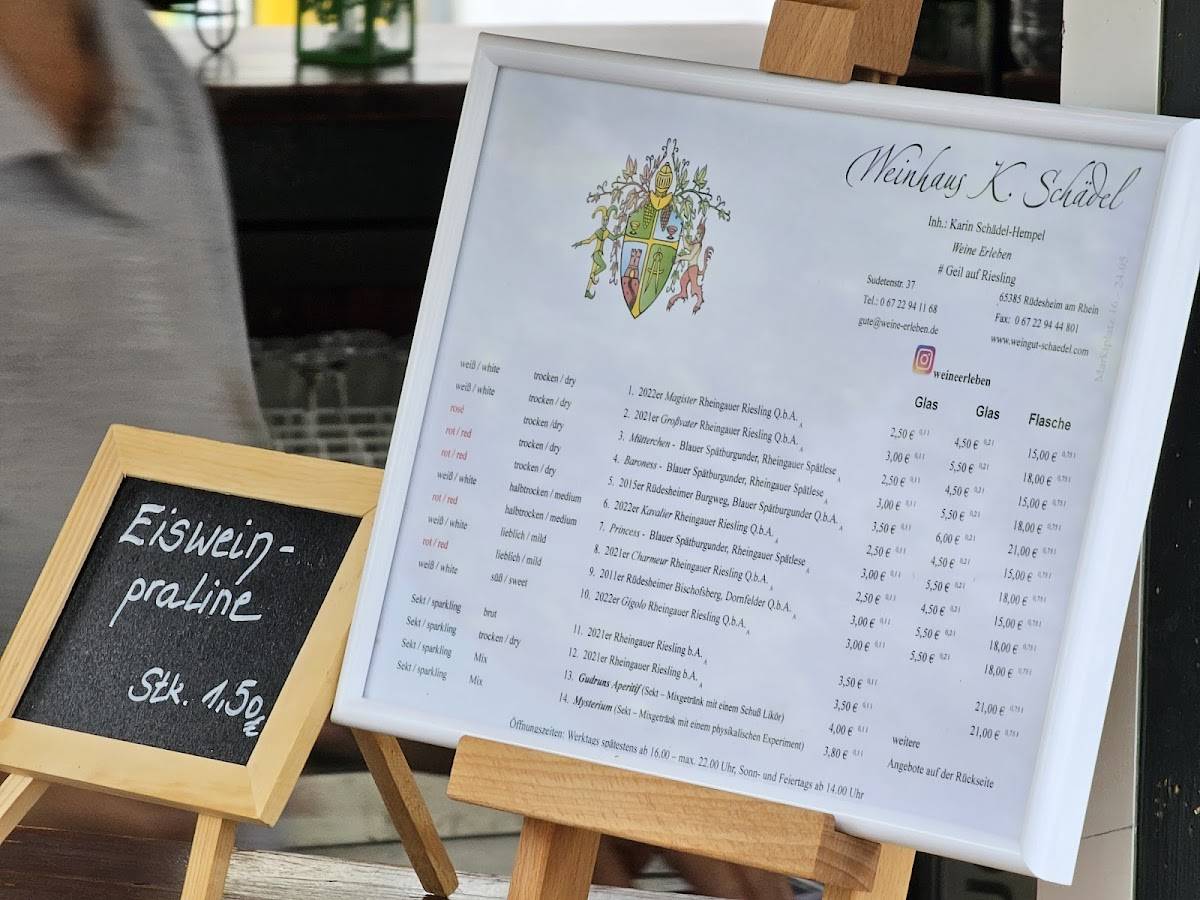 Weinhaus K. Schädel
Inh.: Karin Schädel-Hempel
Weine Erleben
# Geil auf Riesling
Sudetenstr. 37 65385 Rüdesheim am Rhein
Tel.: 0 67 22 94 11 68 Fax: 0 67 22 94 44 801
gute@weine-erleben.de www.weingut-schaedel.com
weineerleben
Marktplatz 16. - 24.05
Glas Glas Flasche
weiß / white trocken / dry 1. 2022er Magister Rheingauer Riesling Q.b.A. A 2,50 € 0,1 l 4,50 € 0,2 l 15,00 € 0,75 l
weiß / white trocken / dry 2. 2021er Großvater Rheingauer Riesling Q.b.A. A 3,00 € 0,1 l 5,50 € 0,2 l 18,00 € 0,75 l
rosé trocken /dry 3. Mütterchen - Blauer Spätburgunder, Rheingauer Spätlese A 2,50 € 0,1 l 4,50 € 0,2 l 15,00 € 0,75 l
rot / red trocken / dry 4. Baroness - Blauer Spätburgunder, Rheingauer Spätlese A 3,00 € 0,1 l 5,50 € 0,2 l 18,00 € 0,75 l
rot / red trocken / dry 5. 2015er Rüdesheimer Burgweg, Blauer Spätburgunder Q.b.A. A 3,50 € 0,1 l 6,00 € 0,2 l 21,00 € 0,75 l
weiß / white halbtrocken / medium 6. 2022er Kavalier Rheingauer Riesling Q.b.A. A 2,50 € 0,1 l 4,50 € 0,2 l 15,00 € 0,75 l
rot / red halbtrocken / medium 7. Princess - Blauer Spätburgunder, Rheingauer Spätlese A 3,00 € 0,1 l 5,50 € 0,2 l 18,00 € 0,75 l
weiß / white lieblich / mild 8. 2021er Charmeur Rheingauer Riesling Q.b.A. A 2,50 € 0,1 l 4,50 € 0,2 l 15,00 € 0,75 l
rot / red lieblich / mild 9. 2011er Rüdesheimer Bischofsberg, Dornfelder Q.b.A. A 3,00 € 0,1 l 5,50 € 0,2 l 18,00 € 0,75 l
weiß / white süß / sweet 10. 2022er Gigolo Rheingauer Riesling Q.b.A. A 3,00 € 0,1 l 5,50 € 0,2 l 18,00 € 0,75 l
Sekt / sparkling brut 11. 2021er Rheingauer Riesling b.A. A 3,50 € 0,1 l 21,00 € 0,75 l
Sekt / sparkling trocken / dry 12. 2021er Rheingauer Riesling b.A. A 3,50 € 0,1 l 21,00 € 0,75 l
Sekt / sparkling Mix 13. Gudruns Aperitif (Sekt – Mixgetränk mit einem Schuß Likör) 4,00 € 0,1 l weitere
Sekt / sparkling Mix 14. Mysterium (Sekt – Mixgetränk mit einem physikalischen Experiment) 3,80 € 0,1 l Angebote auf der Rückseite
Öffnungszeiten: Werktags spätestens ab 16.00 – max. 22.00 Uhr, Sonn- und Feiertags ab 14.00 Uhr
Eiswein-
praline
Stk. 1,50€